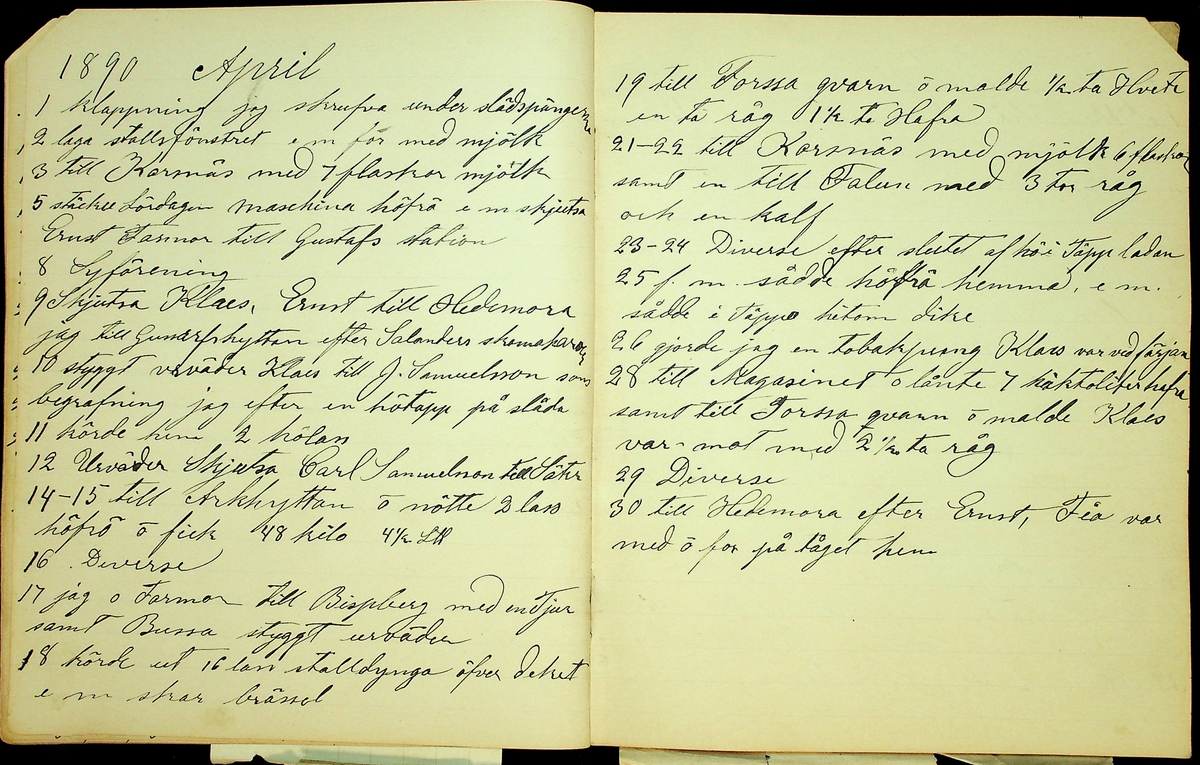 1890 April
1 klappning jag skrufva under slädspängerna
2 laga stallsfönstret e m för med mjölk
3 till Korsnäs med 7 flaskor mjölk
5 Lördagen maschina höfrö e m skjutsa
Ernst Farmor till Gustafs station
8 Syförening
9 Skjutsa Klaes, Ernst till Hedemora
jag till efter Salanders skomakaren
10 styggt urväder Klaes till J. Samuelsson
begrafning jag efter en hötapp på släda
11 körde hem 2 hölass
12 Urväder Skjutsa Carl Samuelsson till Säter
14-15 till Arkhyttan o nötte 2 lass
höfrö o fick 48 kilo 4½ LH
16. Diverse
17 jag o Farmor till Bispberg med en Tjur
samt Bussa styggt urväder
18 körde ut 16 lass stalldynga öfver deket
e m skar
19 till Forssa qvarn o malde ½ ta Hvete
en ta råg 1½ ta Hafra
21-22 till Korsnäs med mjölk 6 flaskor
samt en till Falun med 3 tor råg
och en kalf
23-24 Diverse efter slutet af hö i Täpp ladan
25 f. m. sådde höfrö hemma, e m.
sådde i Täppo hitom dike
26 gjorde jag en tobakpung Klaes var ved färjan
28 till Magasinet o lånte 7 häktoliter hafra
samt till Forssa qvarn o malde Klaes
var mot med 2½ ta råg
29 Diverse
30 till Hedemora efter Ernst, Fia var
med o for på tåget hem